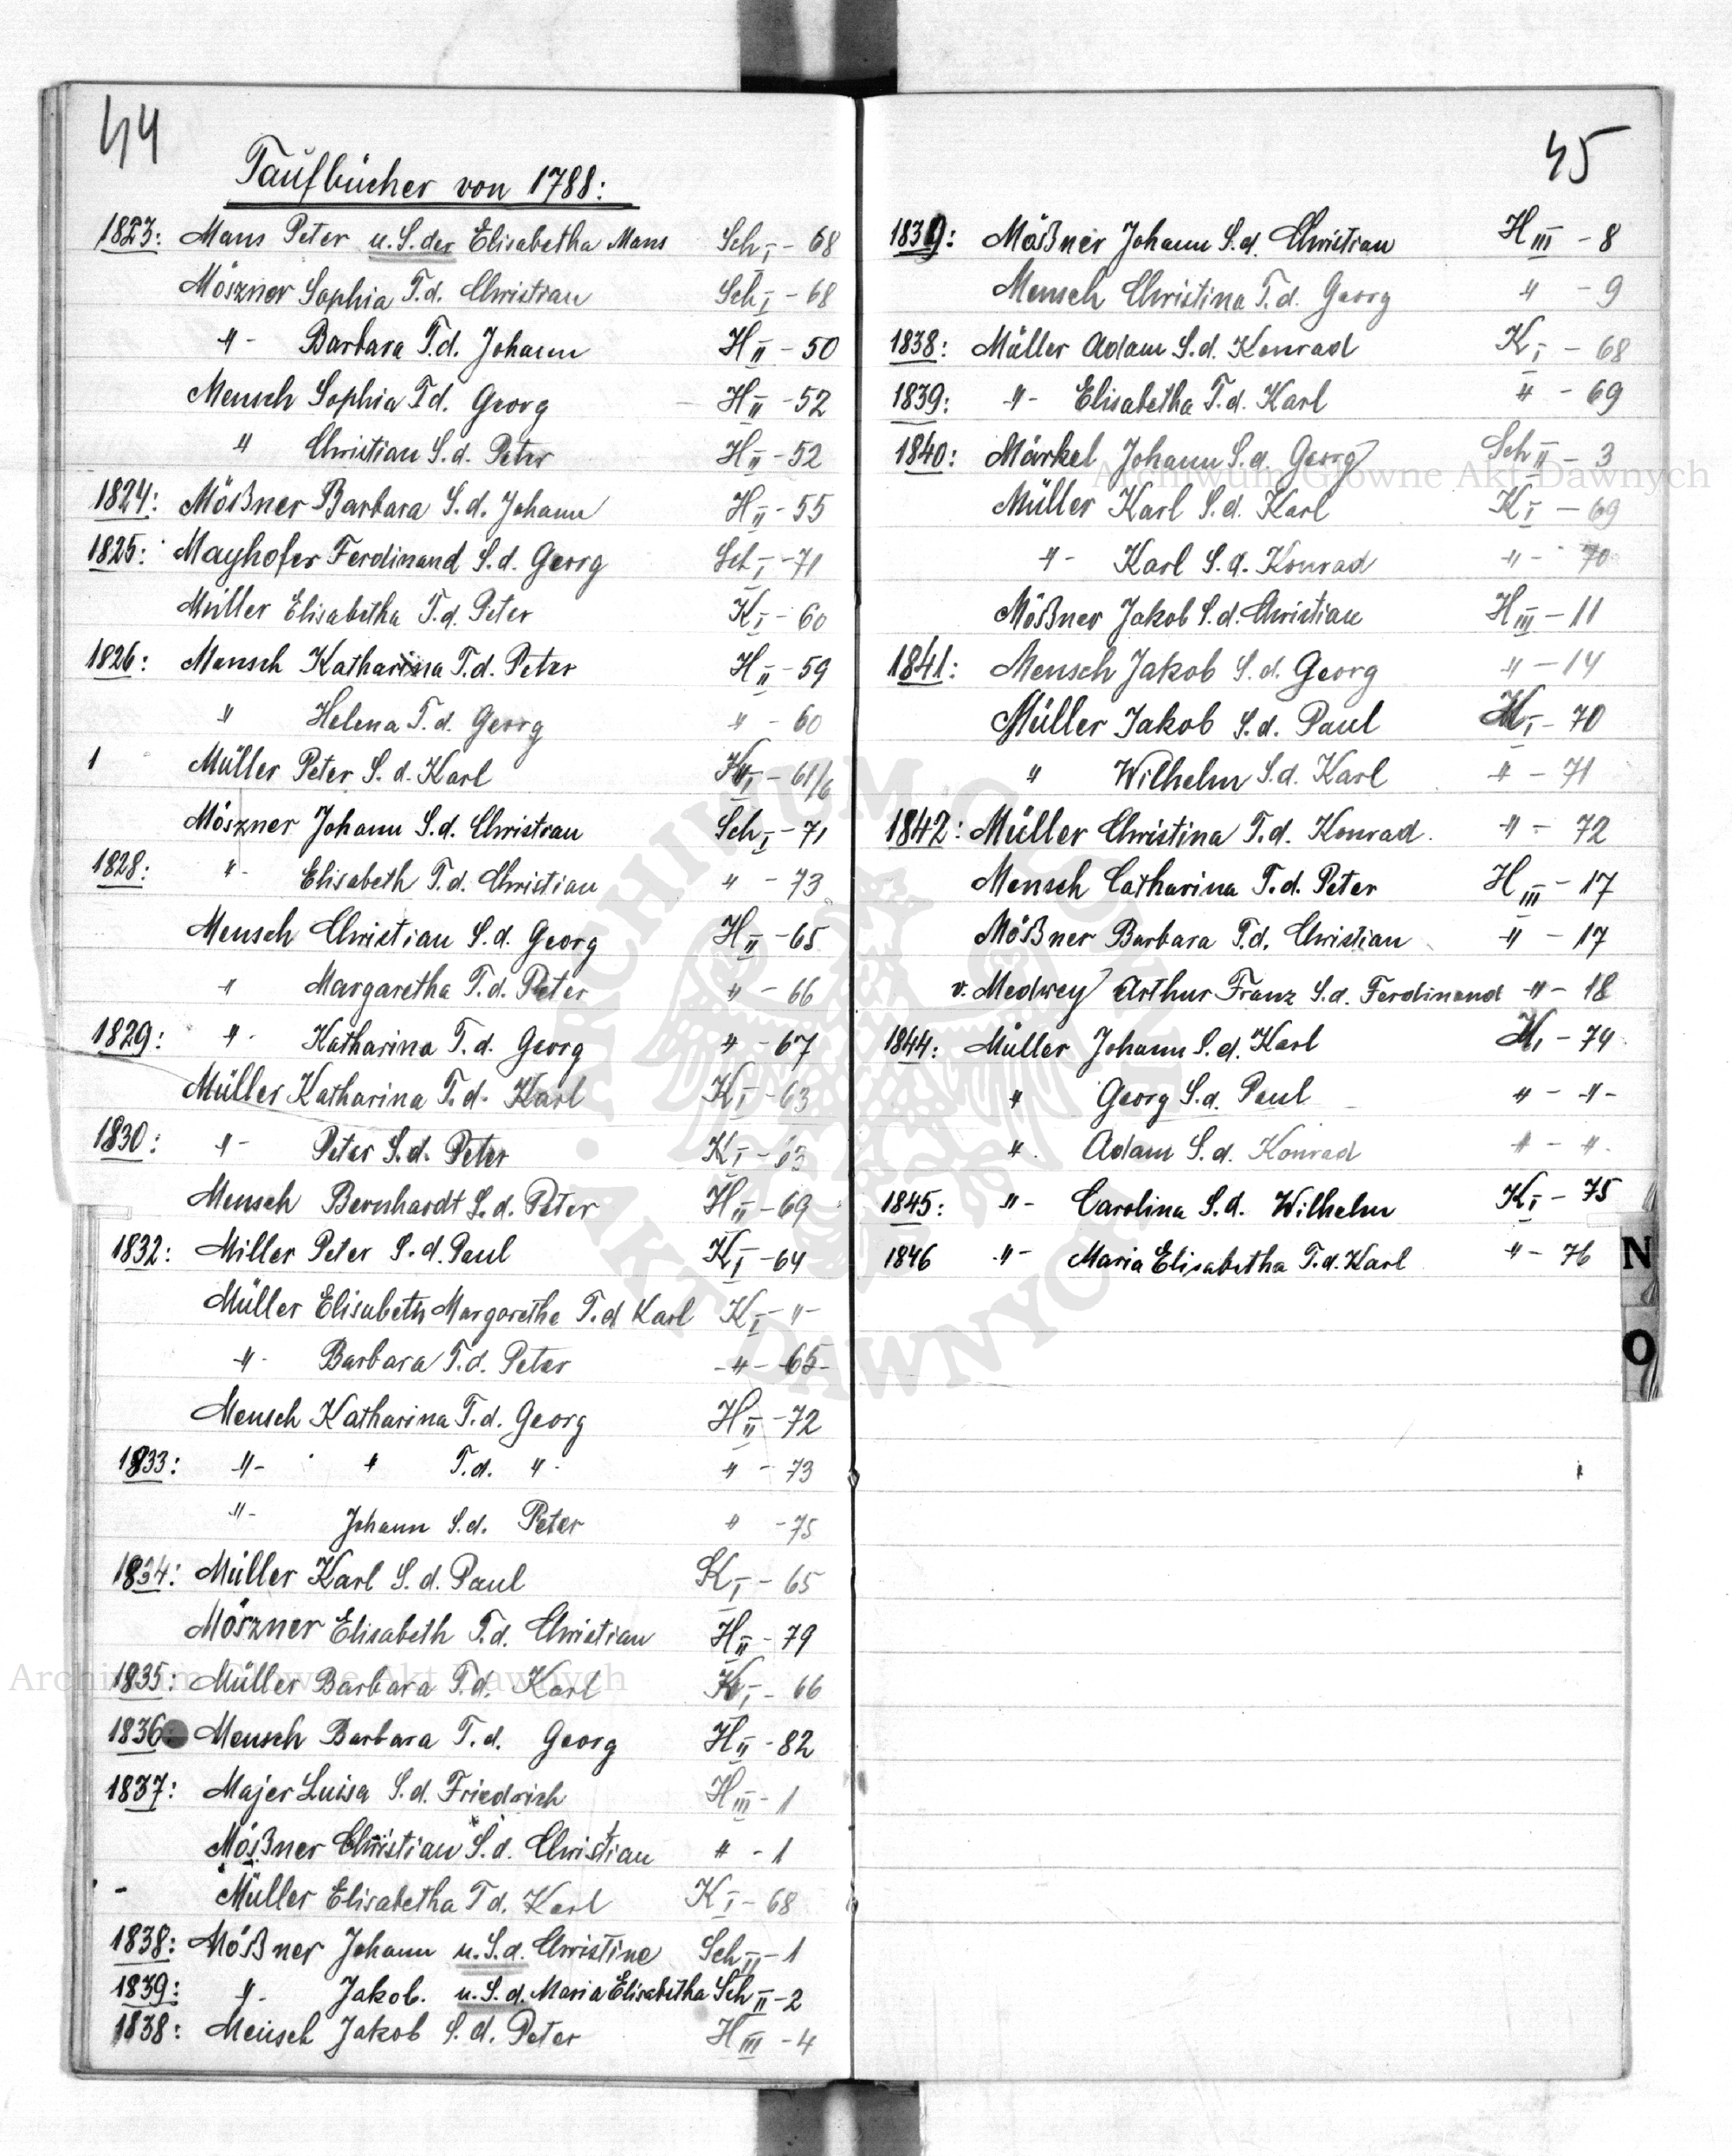 44
Taufbücher von 1788:
1823: Mans Peter u. S. der Elisabetha Mans Sch I - 68
Möszner Sophia T. d. Christian Sch I - 68
" - Barbara T. d. Johann H II - 50
Mensch Sophia T d. Georg - H II - 52
" Christian S. d. Peter H II - 52
1824: Mößner Barbara S. d. Johann H II - 55
1825: Mayhofer Ferdinand S. d. Georg Sch I - 71
Müller Elisabetha T. d. Peter K I - 60
1826: Mensch Katharina T. d. Peter H II - 59
" Helena T. d. Georg " - 60
1 Müller Peter S. d. Karl K I - 61/6
Möszner Johann S. d. Christian Sch I - 71
1828: " - Elisabeth T. d. Christian " - 73
Mensch Christian S. d. Georg H II - 65
" Margaretha T. d. Peter " - 66
1829: " - Katharina T. d. Georg " - 67
Müller Katharina T. d. Karl K I - 63
1830: " - Peter S. d. Peter K I - 63
Mensch Bernhardt S. d. Peter H II - 69
1832: Miller Peter S. d. Paul K I - 64
Müller Elisabeth Margaretha T. d Karl K I - " -
" - Barbara T. d. Peter - " - 65 -
Mensch Katharina T. d. Georg H II - 72
1833: " - " T. d. " - " - 73
" - Johann S. d. Peter " - 75
1834: Müller Karl S. d. Paul K I - 65
Möszner Elisabeth T. d. Christian H II - 79
1835: Müller Barbara T. d. Karl K I - 66
1836: Mensch Barbara T. d. Georg H II - 82
1837: Majer Luisa S. d. Friedrich H III - 1
Mößner Christian S. d. Christian " - 1
- Müller Elisabetha T d. Karl K I - 68
1838: Mößner Johann u. S. d. Christine Sch II - 1
1839: " - Jakob. u. S. d. Maria Elisabetha Sch II - 2
1838: Mensch Jakob S. d. Peter H III - 4
45
1839: Mößner Johann S. d. Christian H III - 8
Mensch Christina T. d. Georg " - 9
1838: Müller Adam S. d. Konrad K I - 68
1839: - " - Elisabetha T. d. Karl " - 69
1840: Märkel Johann S. d. Georg Sch II - 3
Müller Karl S. d. Karl K I - 69
" - Karl S. d. Konrad " - 70
Mößner Jakob S. d. Christian H III - 11
1841: Mensch Jakob S. d. Georg " - 14
Müller Jakob S. d. Paul K I - 70
" Wilhelm S. d. Karl - " - 71
1842: Müller Christina T. d. Konrad. - " - 72
Mensch Catharina T. d. Peter H III - 17
Mößner Barbara T. d. Christian - " - 17
v. Medwey Arthur Franz S. d. Ferdinand - " - 18
1844: Müller Johann S. d. Karl K I - 74
" Georg S. d. Paul " - " -
" . Adam S. d. Konrad " - " .
1845: " - Carolina S. d. Wilhelm K I - 75
1846 " - Maria Elisabetha T. d. Karl " - 76
N
O
Archiwum Główne Akt Dawnych
Archiwum Główne Akt Dawnych
ARCHIWUM GŁÓWNE • AKT DAWNYCH •